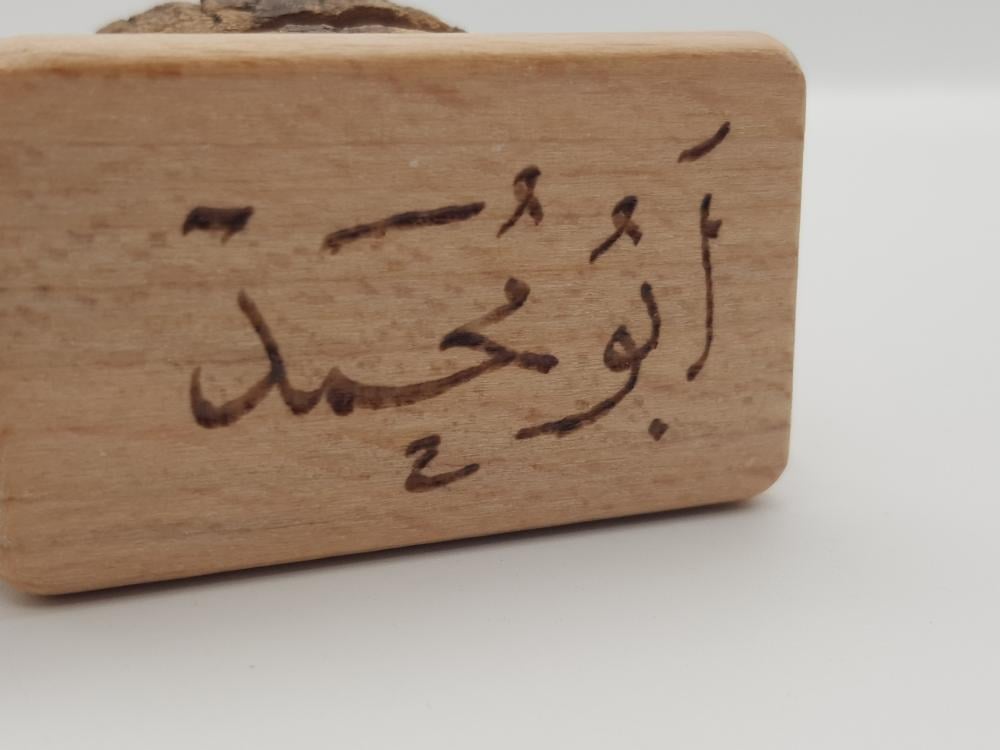 أَبُو مُحَمَد